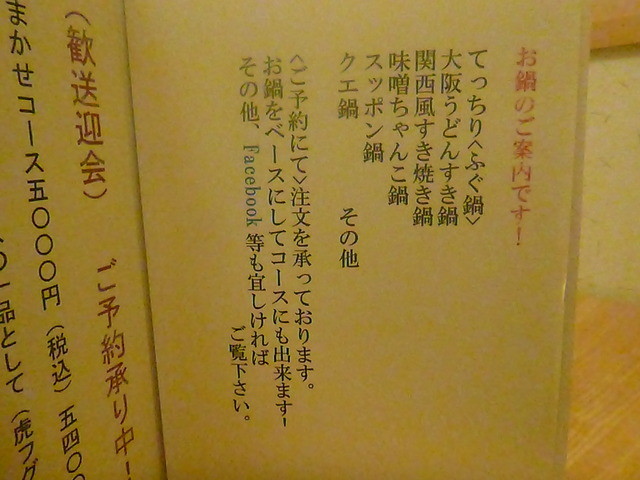 お鍋のご案内です！
てっちり<ふぐ鍋>
大阪うどんすき鍋
関西風すき焼き鍋
味噌ちゃんこ鍋
スッポン鍋
クエ鍋　その他
<ご予約にて>注文を承っております。
お鍋をベースにしてコースにも出来ます!
その他、Facebook等も宜しければ
ご覧下さい。
ご予約承り中！
(歓送迎会)
まかせコース五〇〇〇円（税込）五四〇〇
一品として（虎フグ